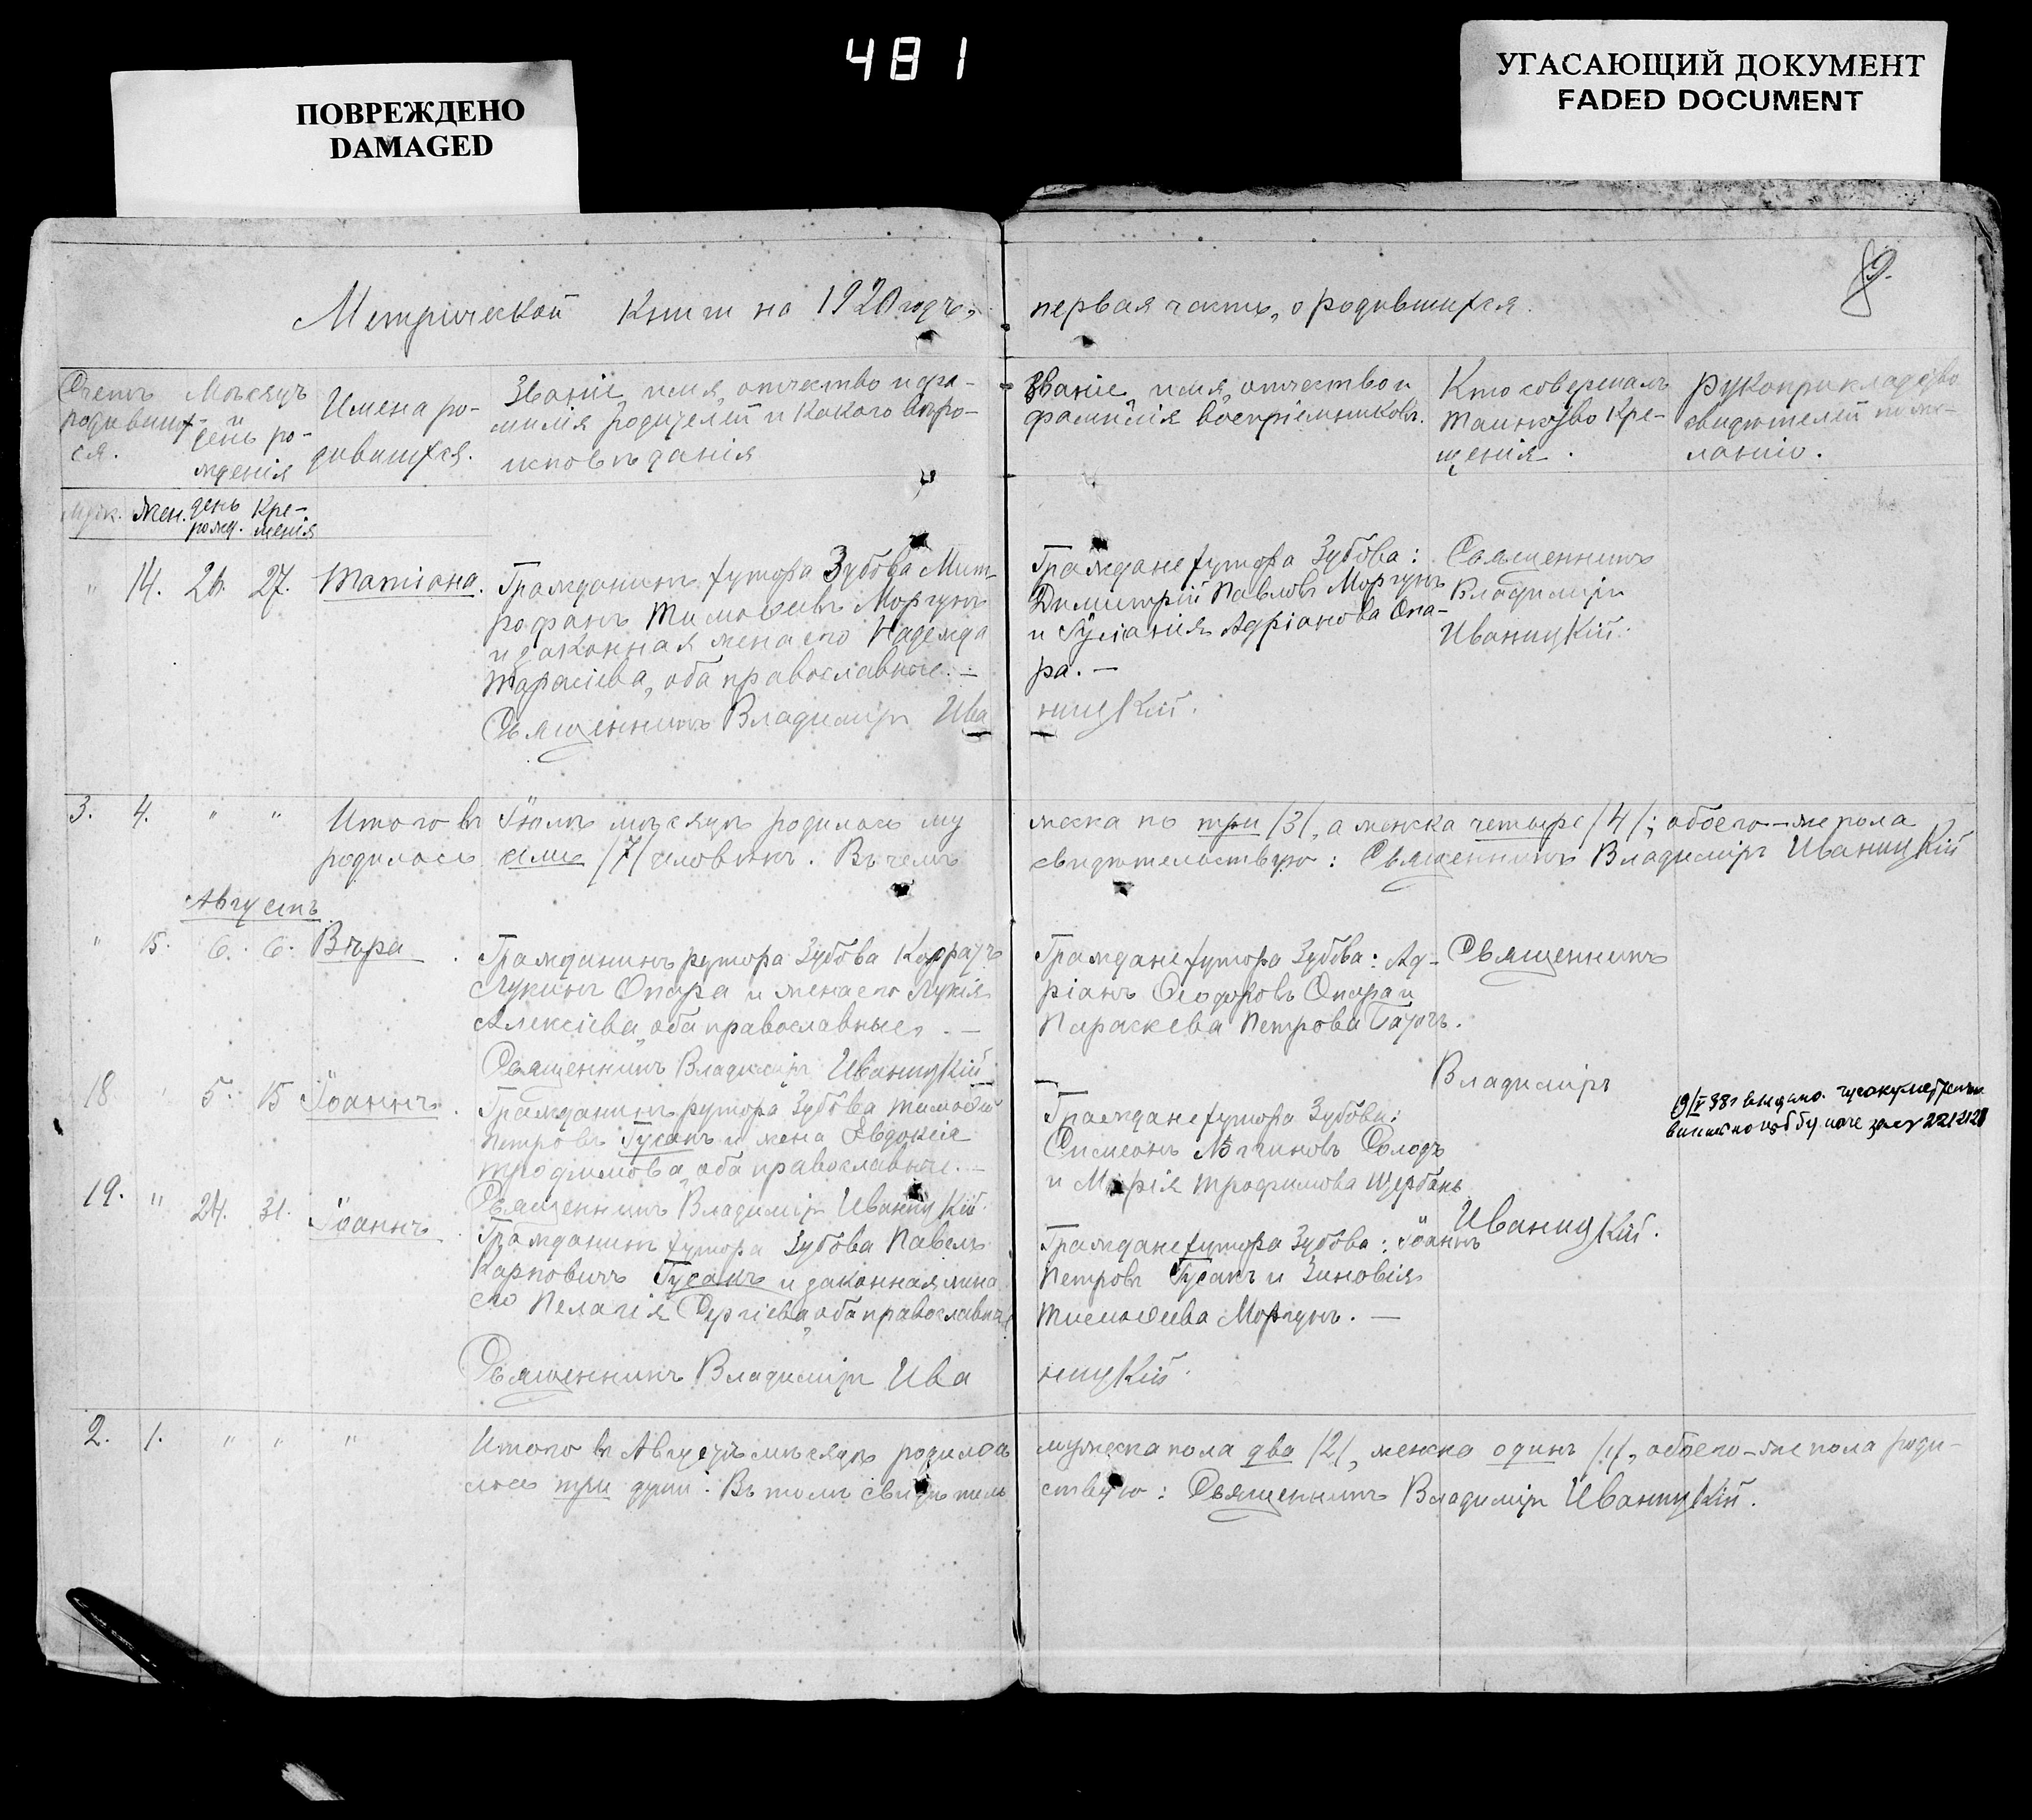 481
ПОВРЕЖДЕНО
DAMAGED
УГАСАЮЩИЙ ДОКУМЕНТ
FADED DOCUMENT
9.
Метрической книги на 1920 годъ,
первая часть, о родившихся.
Счетъ
родивших-
ся.
Мѣсяцъ
и
день ро-
жденія
Имена ро-
дившихся.
Званіе, имя, отчество и фа-
милія родителей и какого вѣро-
исповѣданія
Званіе, имя, отчество и
фамилія воспріемниковъ.
Кто совершалъ
таинство кре-
щенія.
Рукоприкладство
свидѣтелей по же-
ланію.
муж. жен. день рожд. кре-
щенія
" 14. 26. 27. Татіана.
Гражданинъ хутора Зубова Мит-
рофанъ Тимоѳеевъ Моргунъ
и законная жена его Надежда
Тарасіева, оба православные. —
Священникъ Владиміръ Ива
Граждане хутора Зубова:
Димитрій Павловъ Моргунъ
и Іуліанія Адріанова Опа-
ра. —
ницкій.
Священникъ
Владиміръ
Иваницкій.
3. 4. " " Итого въ Іюлѣ мѣсяцѣ родилось му
родилось семь /7/ человѣкъ. Въ чемъ
жска по три /3/, а женска четыре /4/; обоего-же пола
свидѣтельствую: Священникъ Владиміръ Иваницкій
Августъ
" 15. 6. 6. Вѣра.
Гражданинъ хутора Зубова Кодратъ
Лукинъ Опара и жена его Лукія
Алексіева, оба православные. —
Священникъ Владиміръ Иваницкій
Граждане хутора Зубова: Ад-
ріанъ Ѳеодоровъ Опара и
Параскева Петрова
Священникъ
18 " 5. 15 Іоаннъ.
Гражданинъ хутора Зубова Тимоѳей
Петровъ Гусакъ и жена Евдокія
Трофимова, оба православные. —
Священникъ Владиміръ Иваницкій.
Граждане хутора Зубова:
Симеонъ Солодъ
и Марія Трофимова Щербань
Владиміръ
19. " 24. 31. Іоаннъ.
Гражданинъ хутора Зубова Павелъ
Карповичъ Гусакъ и законная жена
его Пелагія Сергіева, оба православные
Священникъ Владиміръ Ива
Граждане хутора Зубова: Іоаннъ
Петровъ Гусакъ и Зиновія
Тимоѳеева Моргунъ. —
ницкій.
Иваницкій.
2. 1. " " " Итого въ Августѣ мѣсяцѣ родилось
лось три души. Въ томъ свидѣтель
мужска пола два /2/, женска одинъ /1/, обоего-же пола роди-
ствую: Священникъ Владиміръ Иваницкій.